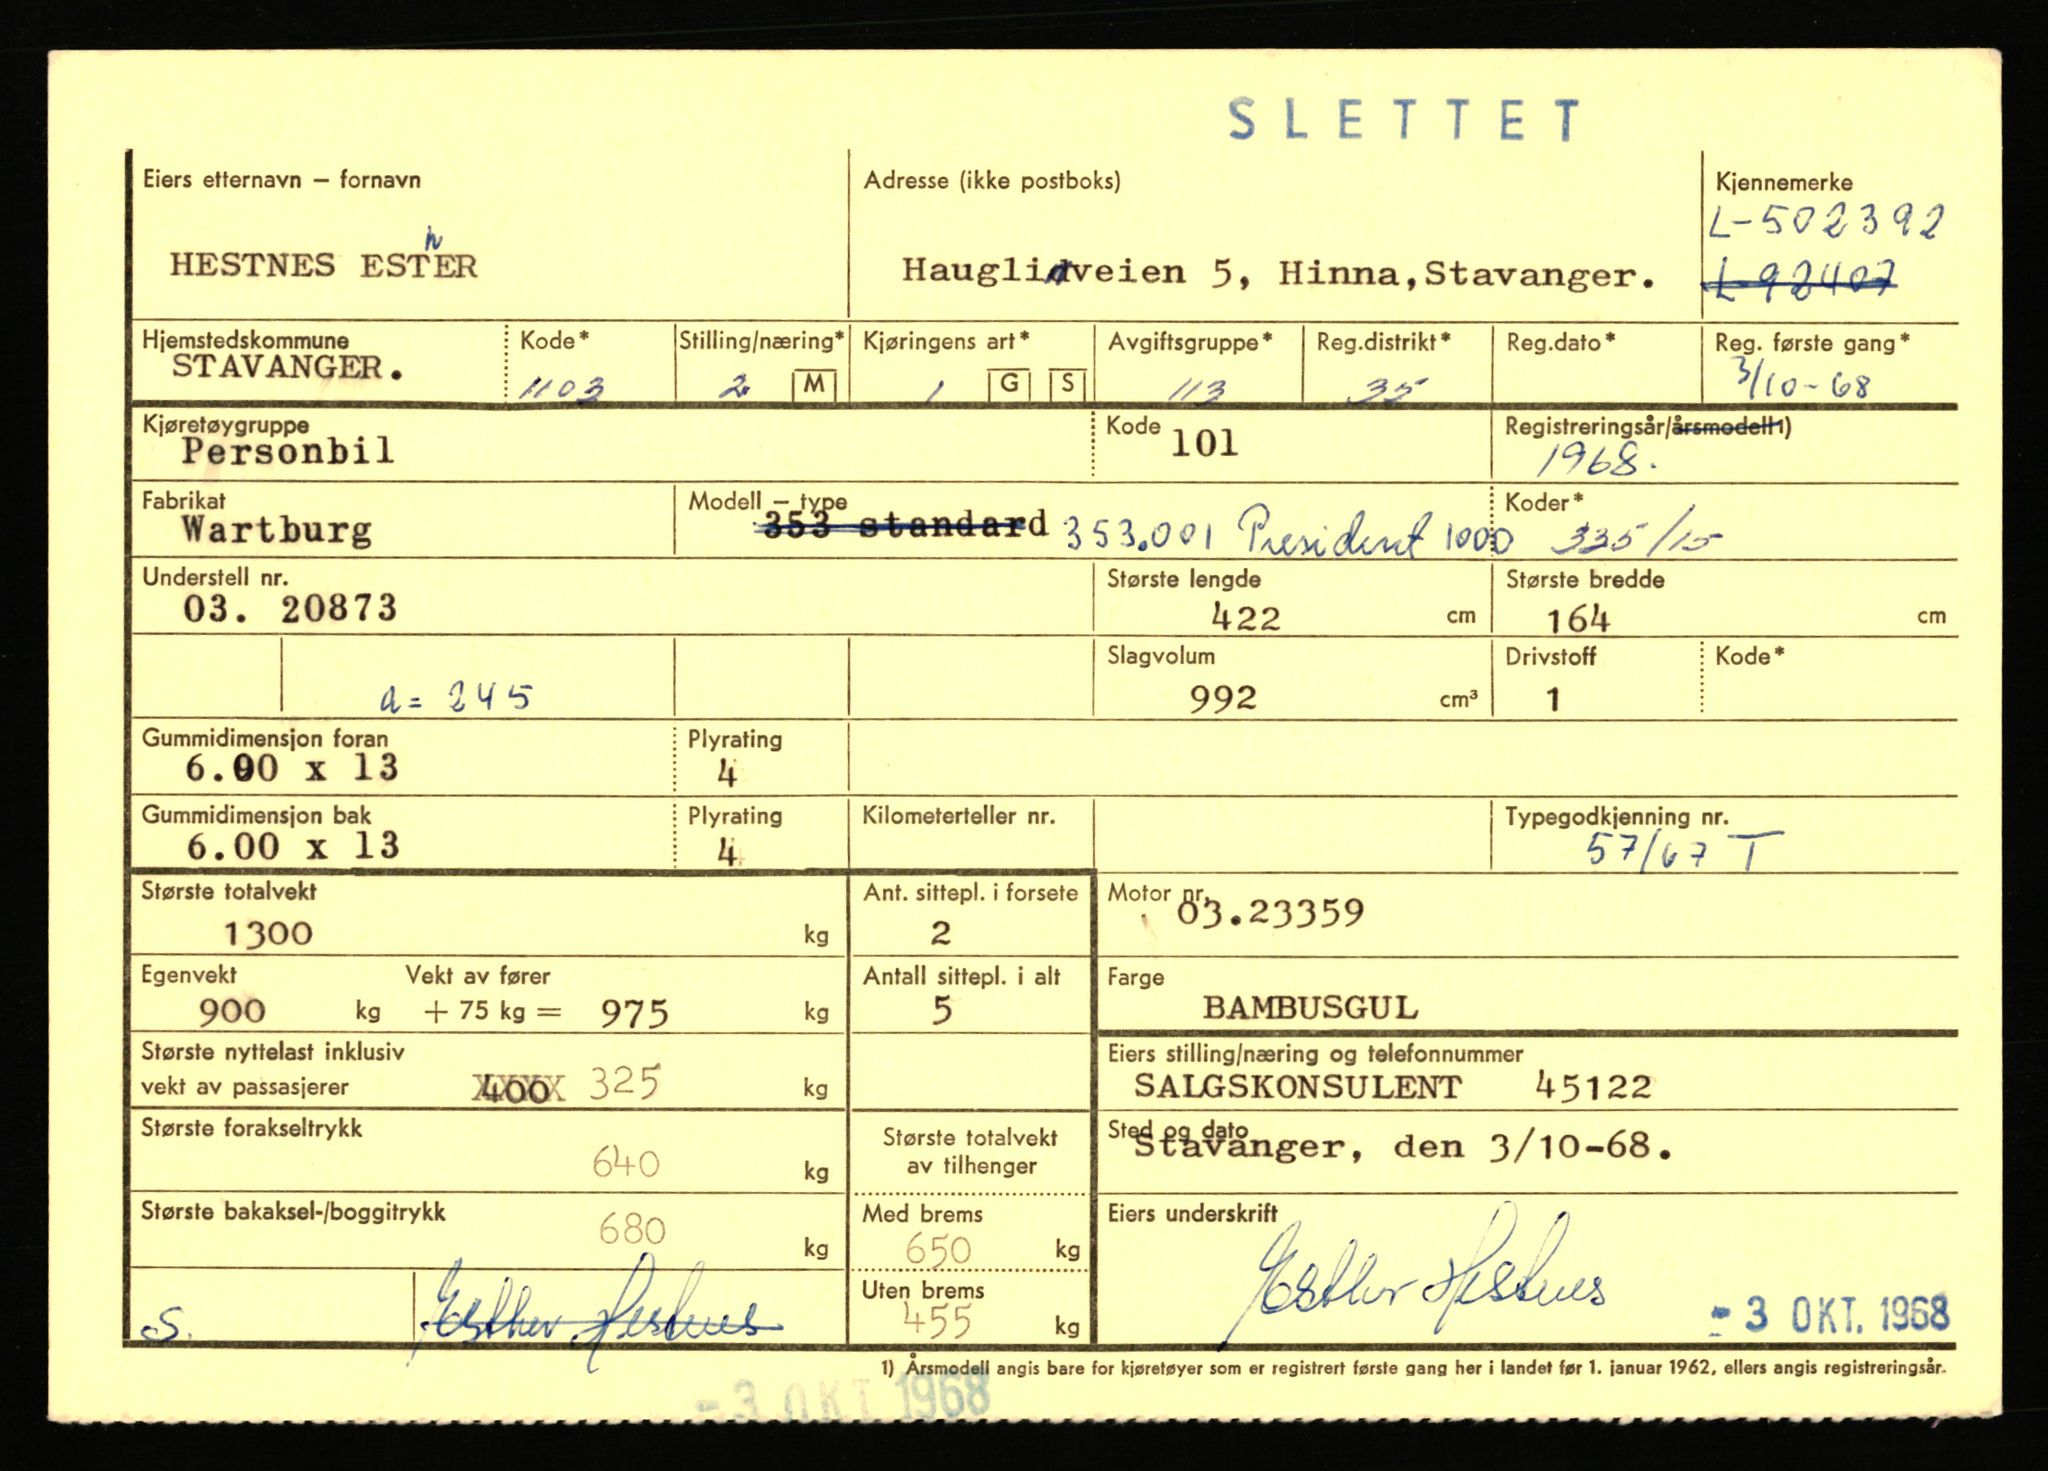 SLETTET
Eiers etternavn – fornavn
Adresse (ikke postboks)
Kjennemerke
L-502392
h
HESTNES ESTER
Hauglidveien 5, Hinna, Stavanger.
L-92407
Hjemstedskommune
Kode*
Stilling/næring*
Kjøringens art*
Avgiftsgruppe*
Reg.distrikt*
Reg.dato*
Reg. første gang*
STAVANGER.
1103
2
M
1
G
S
113
35
3/10-68
Kjøretøygruppe
Kode
Registreringsår/årsmodell 1)
Personbil
101
1968.
Fabrikat
Modell – type
Koder*
Wartburg
353 standard 353.001 President 1000
335/15
Understell nr.
Største lengde
Største bredde
03. 20873
422 cm
164 cm
Slagvolum
Drivstoff
Kode*
a = 245
992 cm³
1
Gummidimensjon foran
Plyrating
6.00 x 13
4
Gummidimensjon bak
Plyrating
Kilometerteller nr.
Typegodkjenning nr.
6.00 x 13
4
57/67 T
Største totalvekt
Ant. sittepl. i forsete
Motor nr.
1300 kg
2
03.23359
Egenvekt
Vekt av fører
Antall sittepl. i alt
Farge
900 kg + 75 kg = 975 kg
5
BAMBUSGUL
Største nyttelast inklusiv
vekt av passasjerer
400 325 kg
Eiers stilling/næring og telefonnummer
SALGSKONSULENT 45122
Største forakseltrykk
640 kg
Største totalvekt
av tilhenger
Sted og dato
Stavanger, den 3/10-68.
Største bakaksel-/boggitrykk
680 kg
Med brems
650 kg
Eiers underskrift
Esther Hestnes
Uten brems
455 kg
S.
Esther Hestnes
- 3 OKT. 1968
1) Årsmodell angis bare for kjøretøyer som er registrert første gang her i landet før 1. januar 1962, ellers angis registreringsår.
- 3 OKT 1968